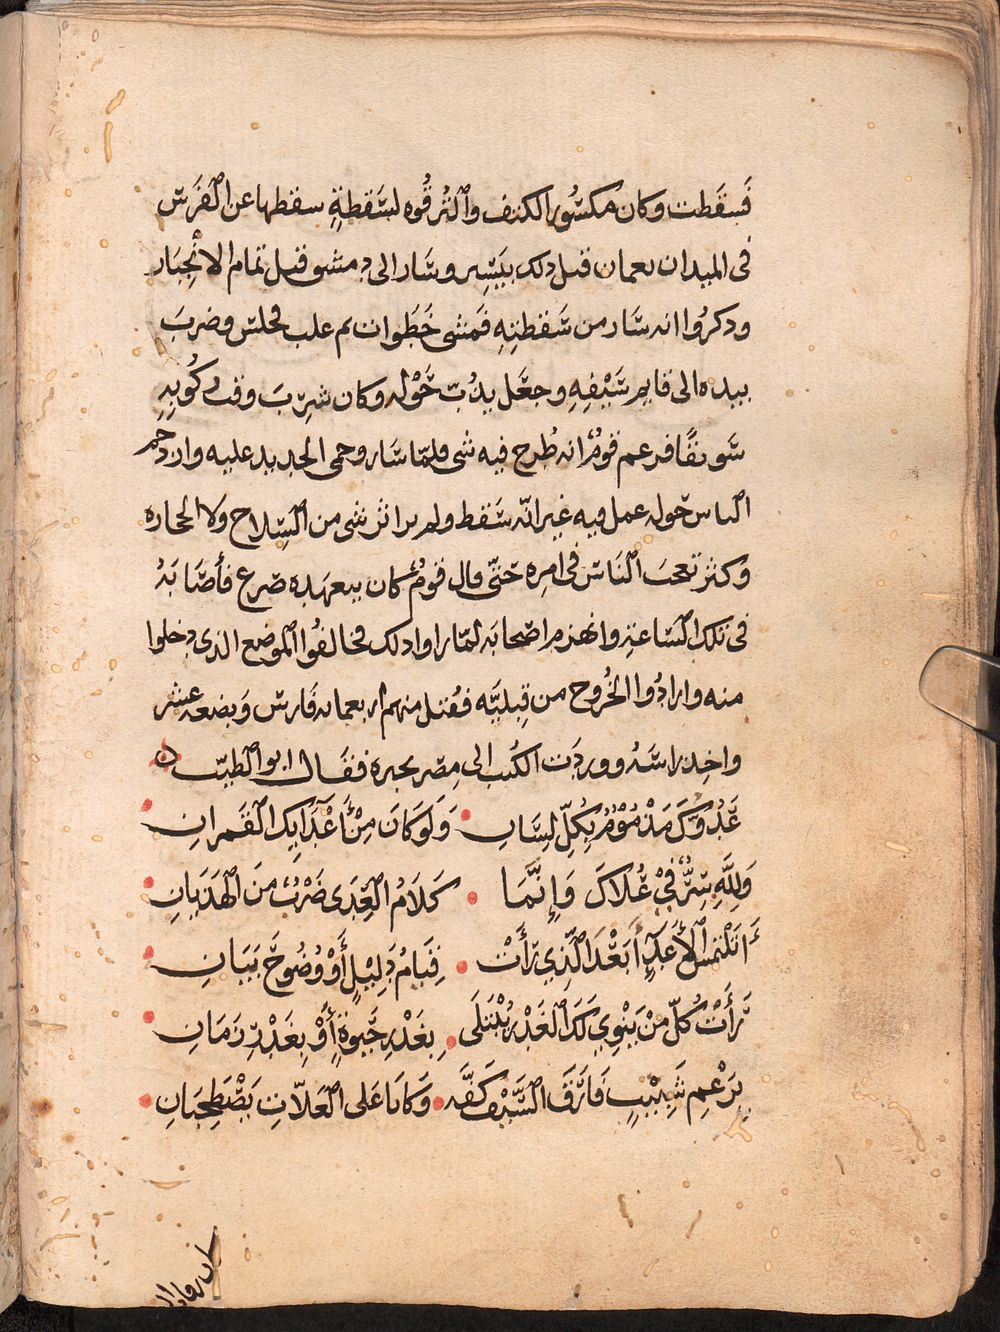 فسقطت وكان مكسُور الكتف والترقُوه لسَقطةٍ سقطها عن الفَرَس
في الميدان بعمان قبل ذلك بيَسِير وسَار الى دمشق قبل تمام الانجِبَار
وذكرُوا انه سَار من سَقطتِهِ فمشى خَطَوات ثم غلب فجلس وضربَ
بيده الى قايم سَيْفِهِ وجعَل يذُبّ حَوْله وكان شرِبَ وقت ركُوبِهِ
سَويقًا فزعم قومٌ انه طُرح فيه شي فلمّا سَار وحمى الحديد عليه وازدحم
الناس حَوله عمل فيه غير انّه سَقط ولم ير اثر شى من السِلاح ولا الحجاره
وكثر تعجّبَ النّاسَ في امره حَتّى قال قومٌ كان يتعهّده صَرع فأصَابَهُ
في تلك السّاعة وانهزم اصحابَه لمّا راوا ذلك فخالفُوا الموضع الذي دخلوا
منه وارادُوا الخُروج من قِبليّه فقُتل منهم اربعمايه فارس وبضعه عشر
واخِذ راسَهُ ووردَت الكُتب الى مِصر بخبره فقَال ابو الطيّب
عَدُوُّكَ مَذْمُوْمٌ بِكُلِّ لِسَانِ • وَلَوْ كَانَ مِنْ أَعْدَآيِكَ الْقَمَرانِ •
وَلِلَّهِ سِرٌّ فِيْ عُلَاكَ وَإِنَّمَا • كَلَامُ الْعِدَى ضَرْبٌ مِنَ الْهَذَيَانِ •
أَتَلْتَمِسُ الْأَعْدَآءُ بَعْدَ الَّذِي رَأَتْ • قِيَامُ دَلِيْلٍ أَوْ وُضُوحَ بَيَانِ •
رَأَتْ كُلَّ مَنْ يَنْوِي لَكَ الْغَدْرَ يُبْتَلَى • بِغَدْرِ حَيوةٍ أَوْ بِغَدْرِ زَمَانِ •
بِرَغْمِ شَبِيْبٍ فَارَقَ السَّيْفَ كَفَّه • وَكَانَا عَلى الْعَلاّتِ يَصْطَحِبَانِ •